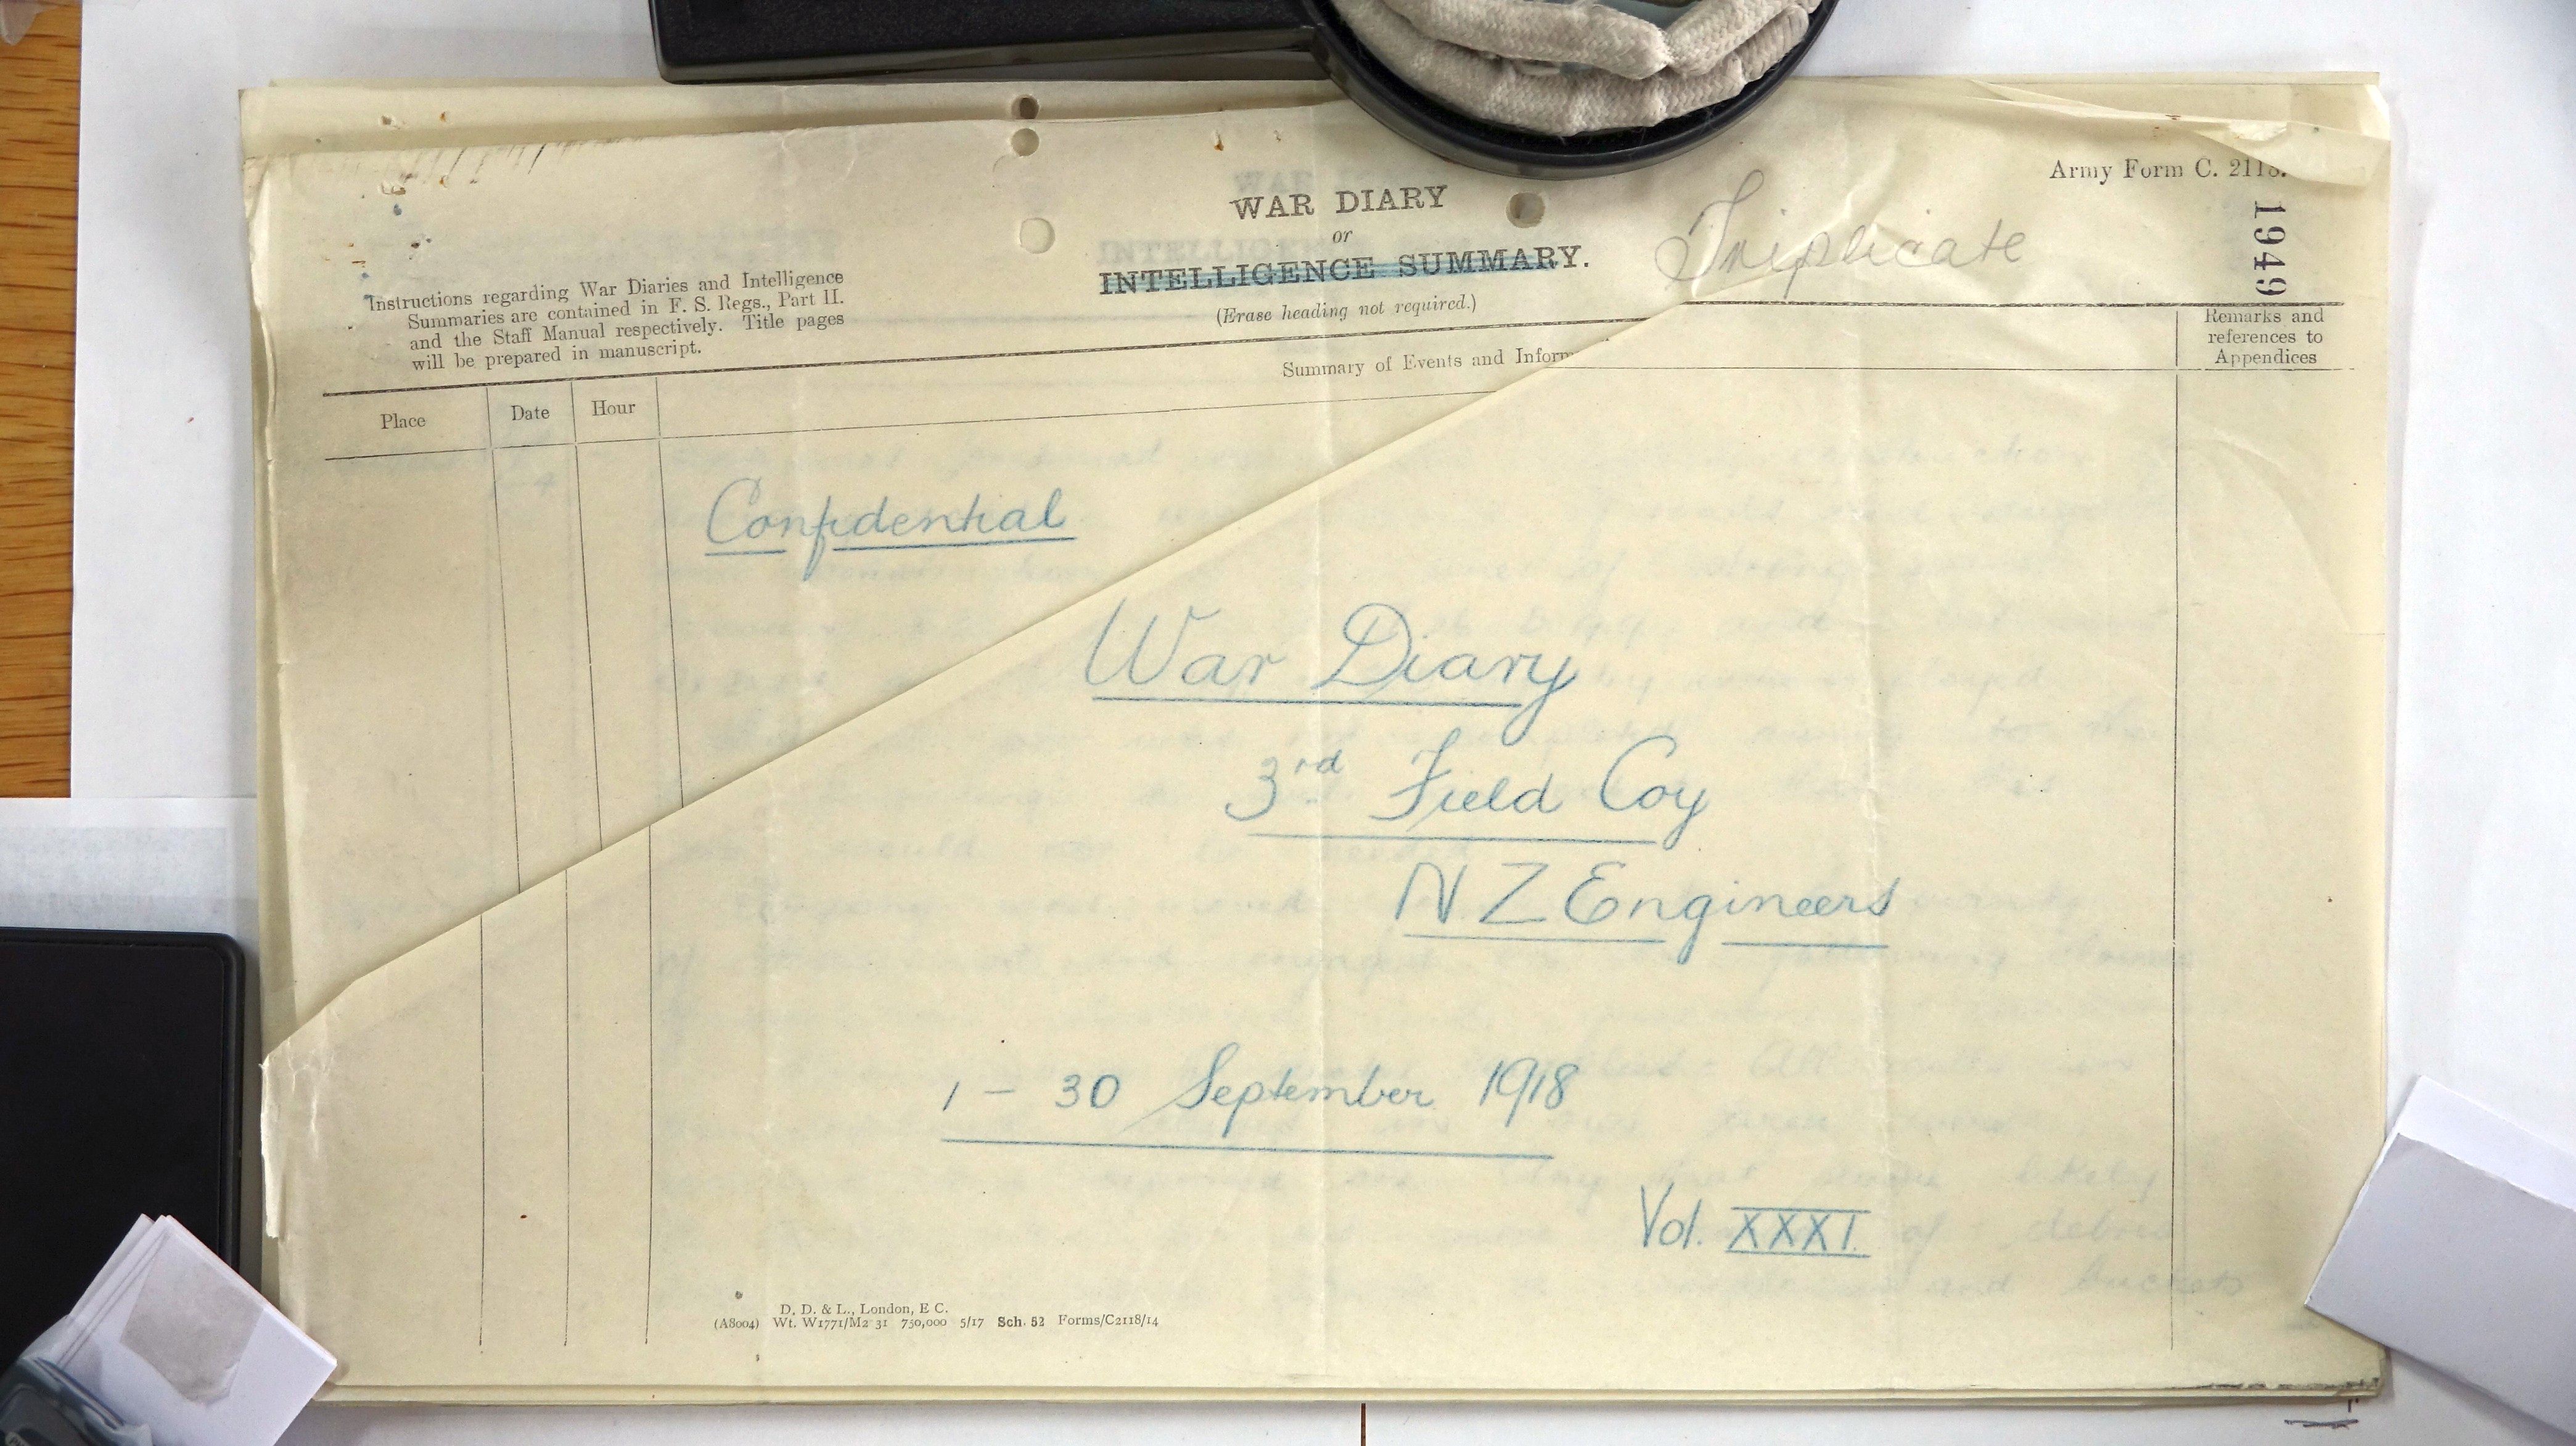 Army Form C. 2118.
WAR DIARY
or
INTELLIGENCE SUMMARY.
(Erase heading not required.)
Triplicate
1949
Instructions regarding War Diaries and Intelligence
Summaries are contained in F. S. Regs., Part II.
and the Staff Manual respectively. Title pages
will be prepared in manuscript.
Place
Date
Hour
Summary of Events and Inform
Remarks and
references to
Appendices
Confidential
War Diary
3rd Field Coy
N Z Engineers
1 – 30 September 1918
Vol. XXXI.
D. D. & L., London, E C.
(A8004) Wt. W1771/M2 31 750,000 5/17 Sch. 52 Forms/C2118/14